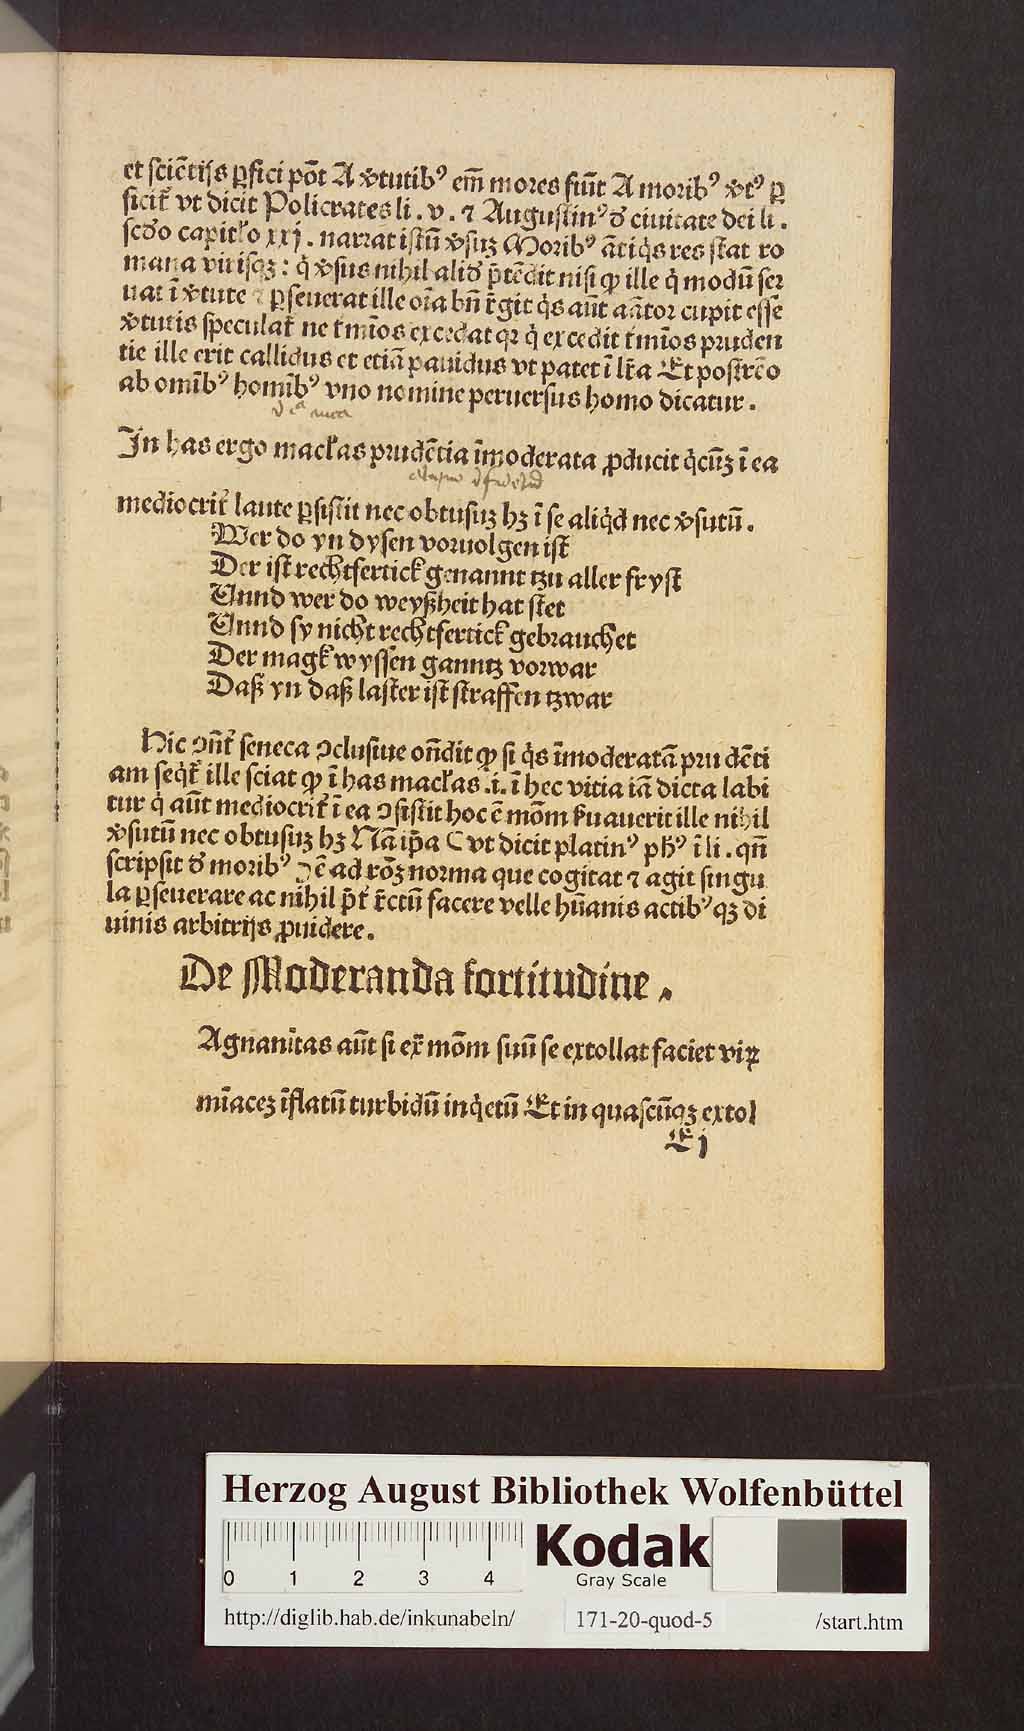 et sciētijs ꝑfici pōt A ꝟtutibꝰ em̄ mores fiūt A moribꝰ ꝟtꝰ ꝑ
ficit᷑ vt dicit Policrates li . v . ⁊ Augustinꝰ ð ciuitate dei li .
scðo capitl̓o xxj . narrat istū ꝟsuꝫ Moribꝰ ātiq̇s res stat ro
mana virisqꝫ : q̇ ꝟsus nihil alið p̄tēdit nisi ꝙ ille q̇ modū ser
uat ī ꝟtute ⁊ ꝑseuerat ille oīa bn̄ r̄git q̇s aūt aūtor cupit esse
ꝟtutis speculat᷑ ne t̓mīos excedat qꝛ q̇ excedit t̓mīos pruden
tie ille erit callidus et etiā pauidus vt patet ī lr̄a Et postrēo
ab omībꝰ homībꝰ vno nomine peruersus homo dicatur .
In has ergo macl̓as prudētia īmoderata ꝓducit q̇cūꝫ ī ea
mediocrit̓ laute ꝑsistit nec obtusuꝫ hꝫ ī se aliq̇d nec ꝟsutū .
Wer do yn dysen voruolgen ist
Der ist rechtfertick genannt tzu aller fryst
Unnd wer do weyßheit hat stet
Unnd sy nicht rechtfertick gebrauchet
Der magk wyssen ganntz vorwar
Daß yn daß laster ist straffen tzwar
Hic ꝯn̄t᷑ seneca ꝯclusiue on̄dit ꝙ si q̇s īmoderatā prudēti
am seq̇t᷑ ille sciat ꝙ ī has macl̓as .i. ī hec vitia iā dicta labi
tur q̇ aūt mediocrit̓ ī ea ꝯsistit hoc ē mōm ẜuauerit ille nihil
ꝟsutū nec obtusuꝫ hꝫ Nā ip̄a vt dicit platinꝰ ph̄ꝰ ī li . qn̄
scripsit ð moribꝰ ē ad rōꝫ norma que cogitat ⁊ agit singu
la ꝑseuerare ac nihil p̄t̓ r̄ctū facere velle hūanis actibꝰqꝫ di
uinis arbitrijs ꝓuidere .
De Moderanda fortitudine .
Agnanītas aūt si ex̄ mōm suū se extollat faciet viꝝ
mīaceꝫ īflatū turbidū inq̇etū Et in quascūqꝫ extol
E j
Herzog August Bibliothek Wolfenbüttel
0 1 2 3 4
Kodak
Gray Scale
http://diglib.hab.de/inkunabeln/ 171-20-quod-5 /start.htm